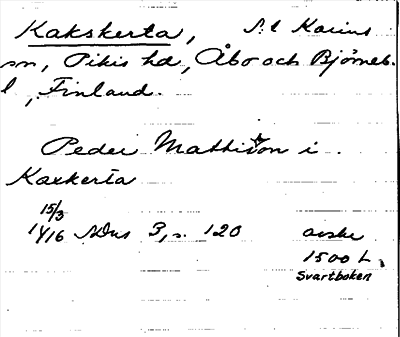 Kakskerta, S:t Karins
sn, Pikis hd, Åbo och Björneb.
l, Finland.
Peder Mattisson i
Kaxkerta
15/3
1416 SDns 3, s. 120 avskr
1500 t.
Svartboken